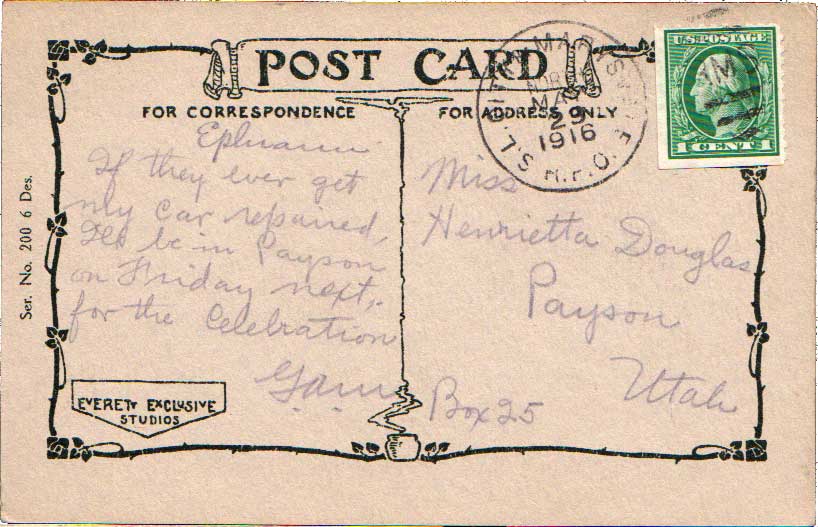 POST CARD
FOR CORRESPONDENCE
FOR ADDRESS ONLY
U.S. POSTAGE
1 CENT 1
MAY
29
1916
S.L. R.P.O.
Ephraim
If they ever get
my car repaired,
I'll be in Payson
on Friday next,
for the Celebration
Miss
Henrietta Douglas
Payson
Utah
Box 25
EVERETT EXCLUSIVE
STUDIOS
Ser. No. 200 6 Des.